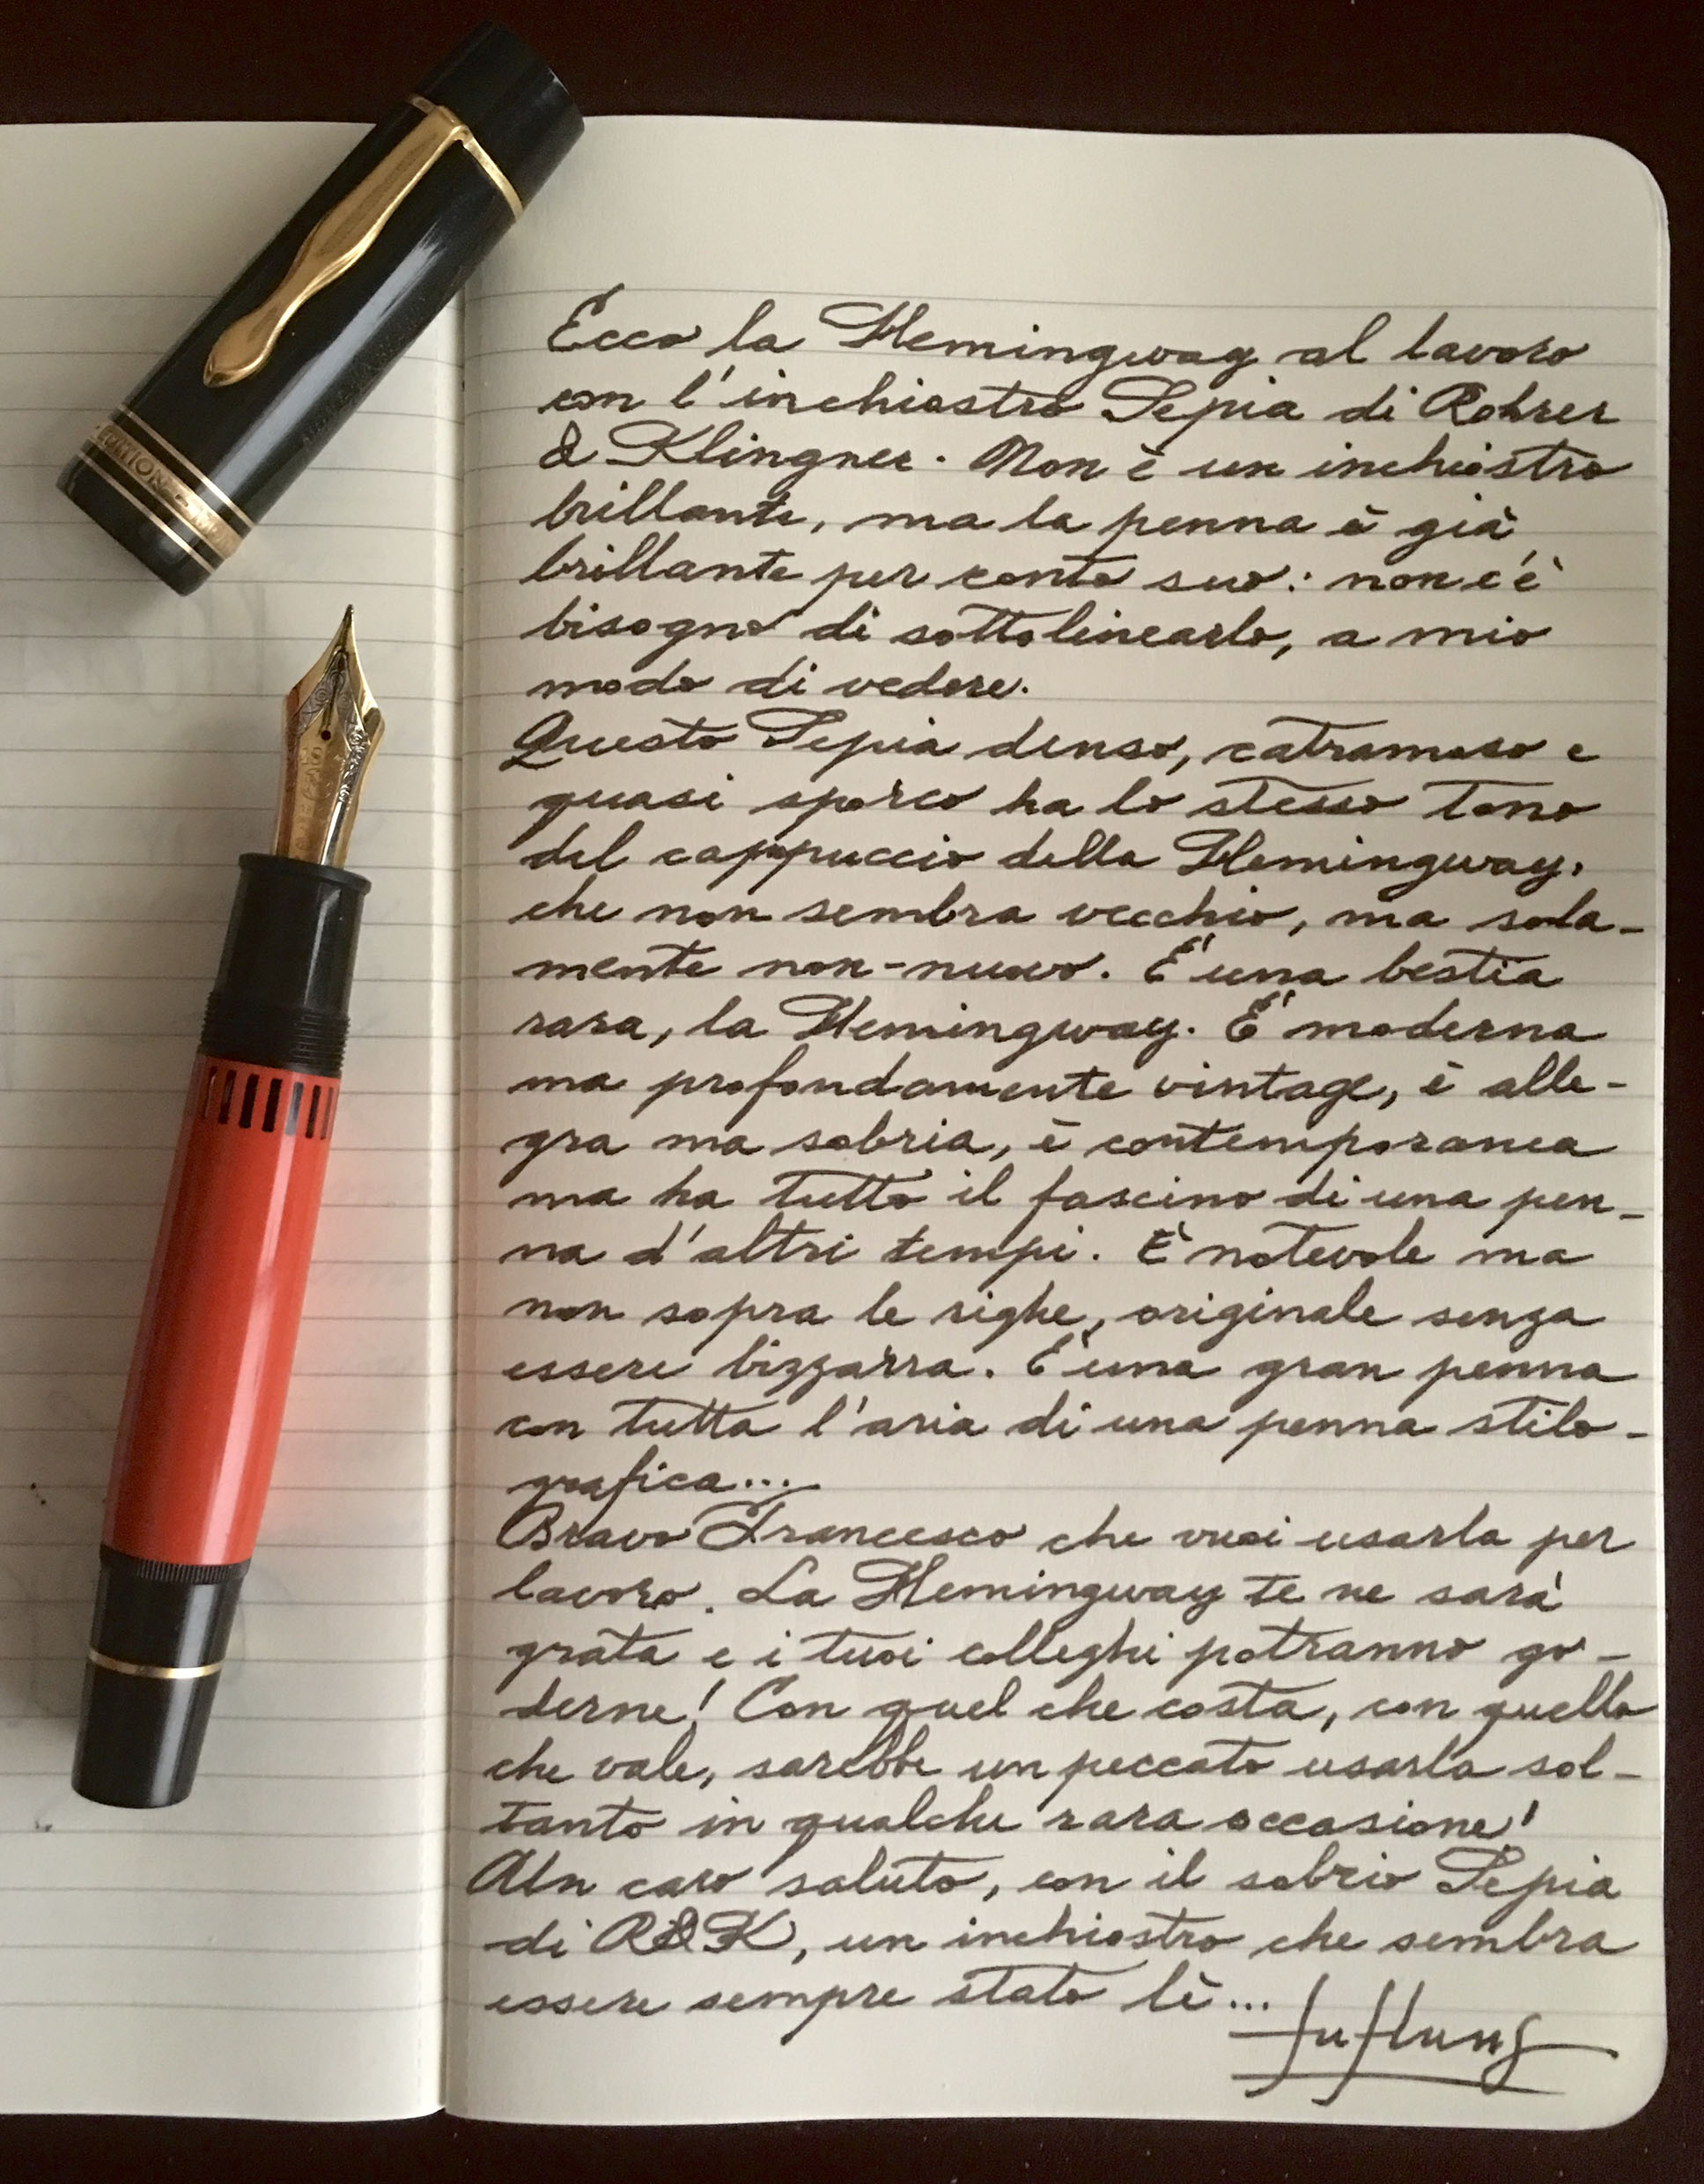 EDITION
Ecco la Hemingway al lavoro
con l'inchiostro Sepia di Rohrer
& Klingner. Non è un inchiostro
brillante, ma la penna è già
brillante per conto suo: non c'è
bisogno di sottolinearlo, a mio
modo di vedere.
Questo Sepia denso, catramoso e
quasi sporco ha lo stesso tono
del cappuccio della Hemingway,
che non sembra vecchio, ma sola-
mente non-nuovo. E' una bestia
rara, la Hemingway. E' moderna
ma profondamente vintage, è alle-
gra ma sobria, è contemporanea
ma ha tutto il fascino di una pen-
na d'altri tempi. E' notevole ma
non sopra le righe, originale senza
essere bizzarra. E' una gran penna
con tutta l'aria di una penna stilo-
grafica...
Bravo Francesco che vuoi usarla per
lavoro. La Hemingway te ne sarà
grata e i tuoi colleghi potranno go-
derne! Con quel che costa, con quello
che vale, sarebbe un peccato usarla sol-
tanto in qualche rara occasione!
Un caro saluto, con il sobrio Sepia
di R&K, un inchiostro che sembra
essere sempre stato lì...